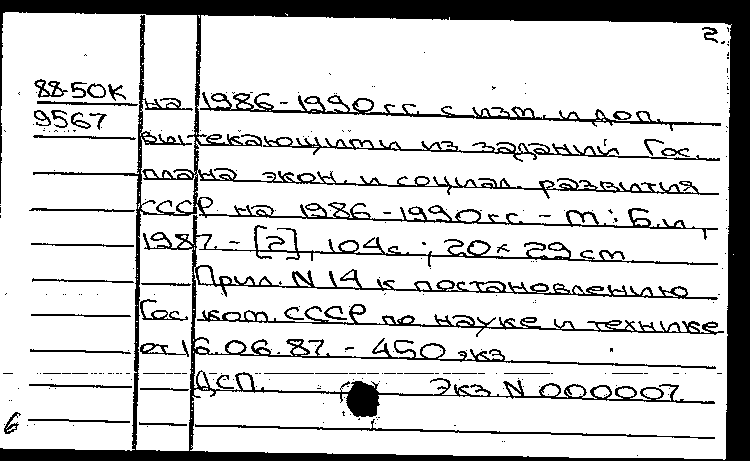 2.
88-50К
9567
на 1986-1990 гг. с изм. и доп.,
вытекающими из заданий Гос.
плана экон. и социал. развития
СССР на 1986-1990 гг. - М.: Б.и.,
1987. - [2], 104с.; 20 х 29 см.
Прил. N 14 к постановлению
Гос. ком. СССР по науке и технике
от 16.06.87. - 450 экз.
ДСП. Экз. N 000007.
6